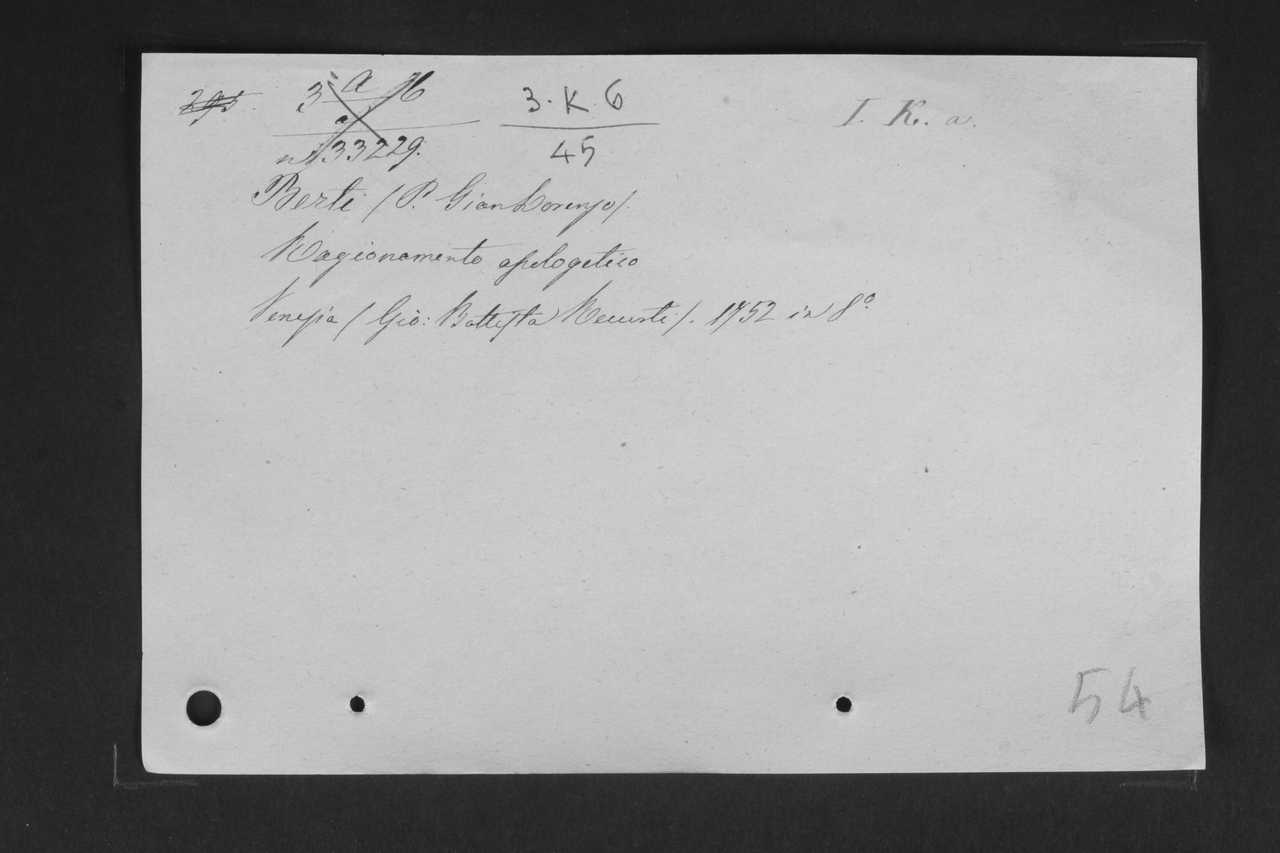 295
3 a 16
3. K. 6
I. K. a.
a
n. 33229.
45
Berti / P. Gian Lorenzo /.
Ragionamento apologetico
Venezia / Gio: Battista Recurti /. 1752 in 8°
54